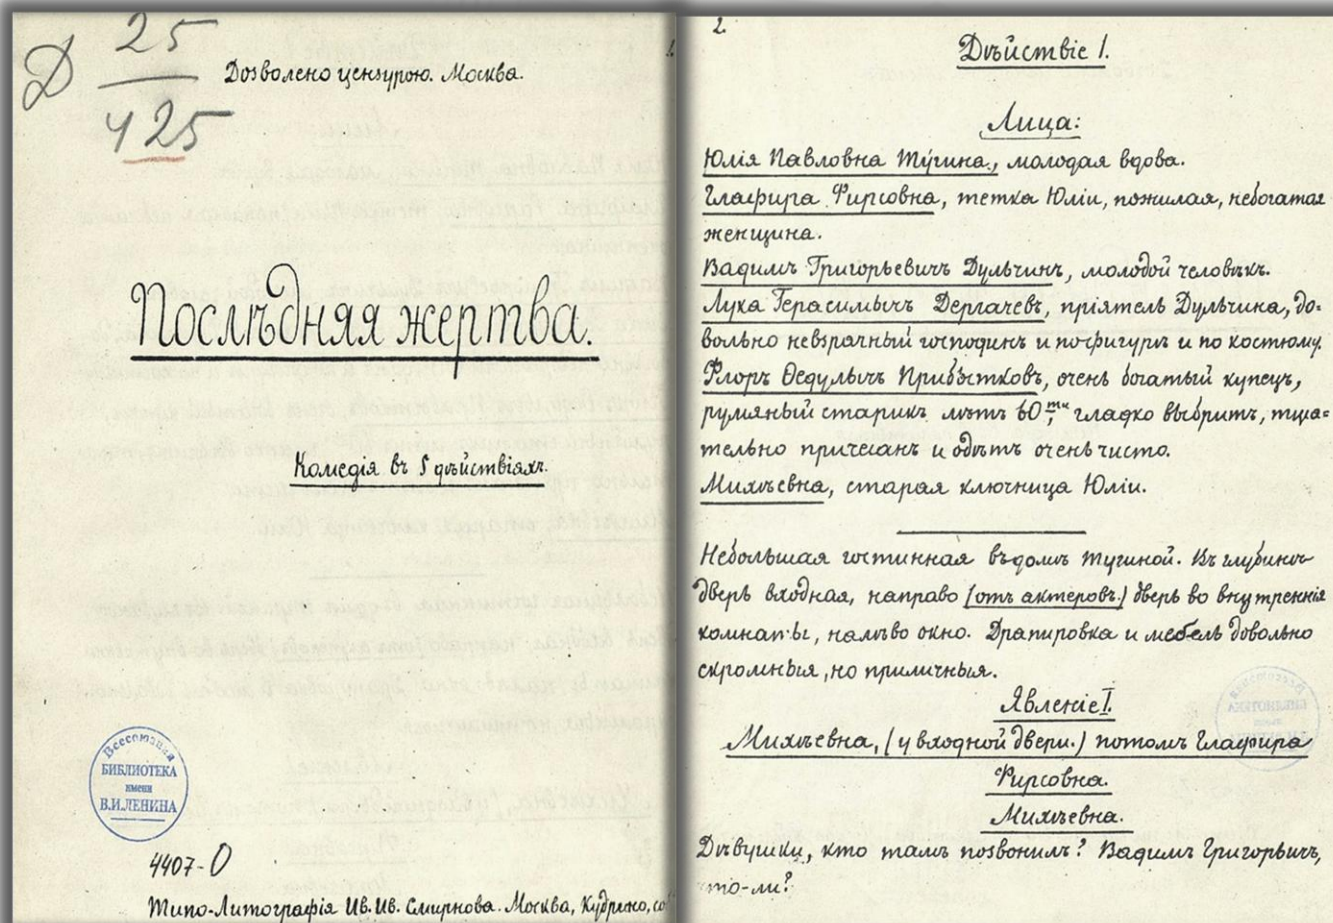 Д 25
425
1.
Дозволено цензурою. Москва.
Послѣдняя жертва.
Комедія въ 5 дѣйствіяхъ.
Всесоюзная
БИБЛИОТЕКА
имени
В.И.ЛЕНИНА
4407-0
Типо-Литографія Ив. Ив. Смирнова. Москва, Кудрино, со
2.
Дѣйствіе 1.
Лица:
Юлія Павловна Тугина, молодая вдова.
Глафира Фирсовна, тетка Юліи, пожилая, небогатая
женщина.
Вадимъ Григорьевичъ Дульчинъ, молодой человѣкъ.
Лука Герасимычъ Дергачевъ, пріятель Дульчина, до=
вольно невзрачный господинъ и по фигурѣ и по костюму.
Флоръ Ѳедулычъ Прибытковъ, очень богатый купецъ,
румяный старикъ лѣтъ 60ти, гладко выбритъ, тща=
тельно причесанъ и одѣтъ очень чисто.
Михѣевна, старая ключница Юліи.
Небольшая гостинная въ домѣ Тугиной. Въ глубинѣ
дверь входная, направо (отъ актеровъ.) дверь во внутреннія
комнаты, налѣво окно. Драпировка и мебель довольно
скромныя, но приличныя.
Явленіе I.
Михѣевна, (у входной двери.) потомъ Глафира
Фирсовна.
Михѣевна.
Дѣвушки, кто тамъ позвонилъ? Вадимъ Григорьичъ,
что-ли?